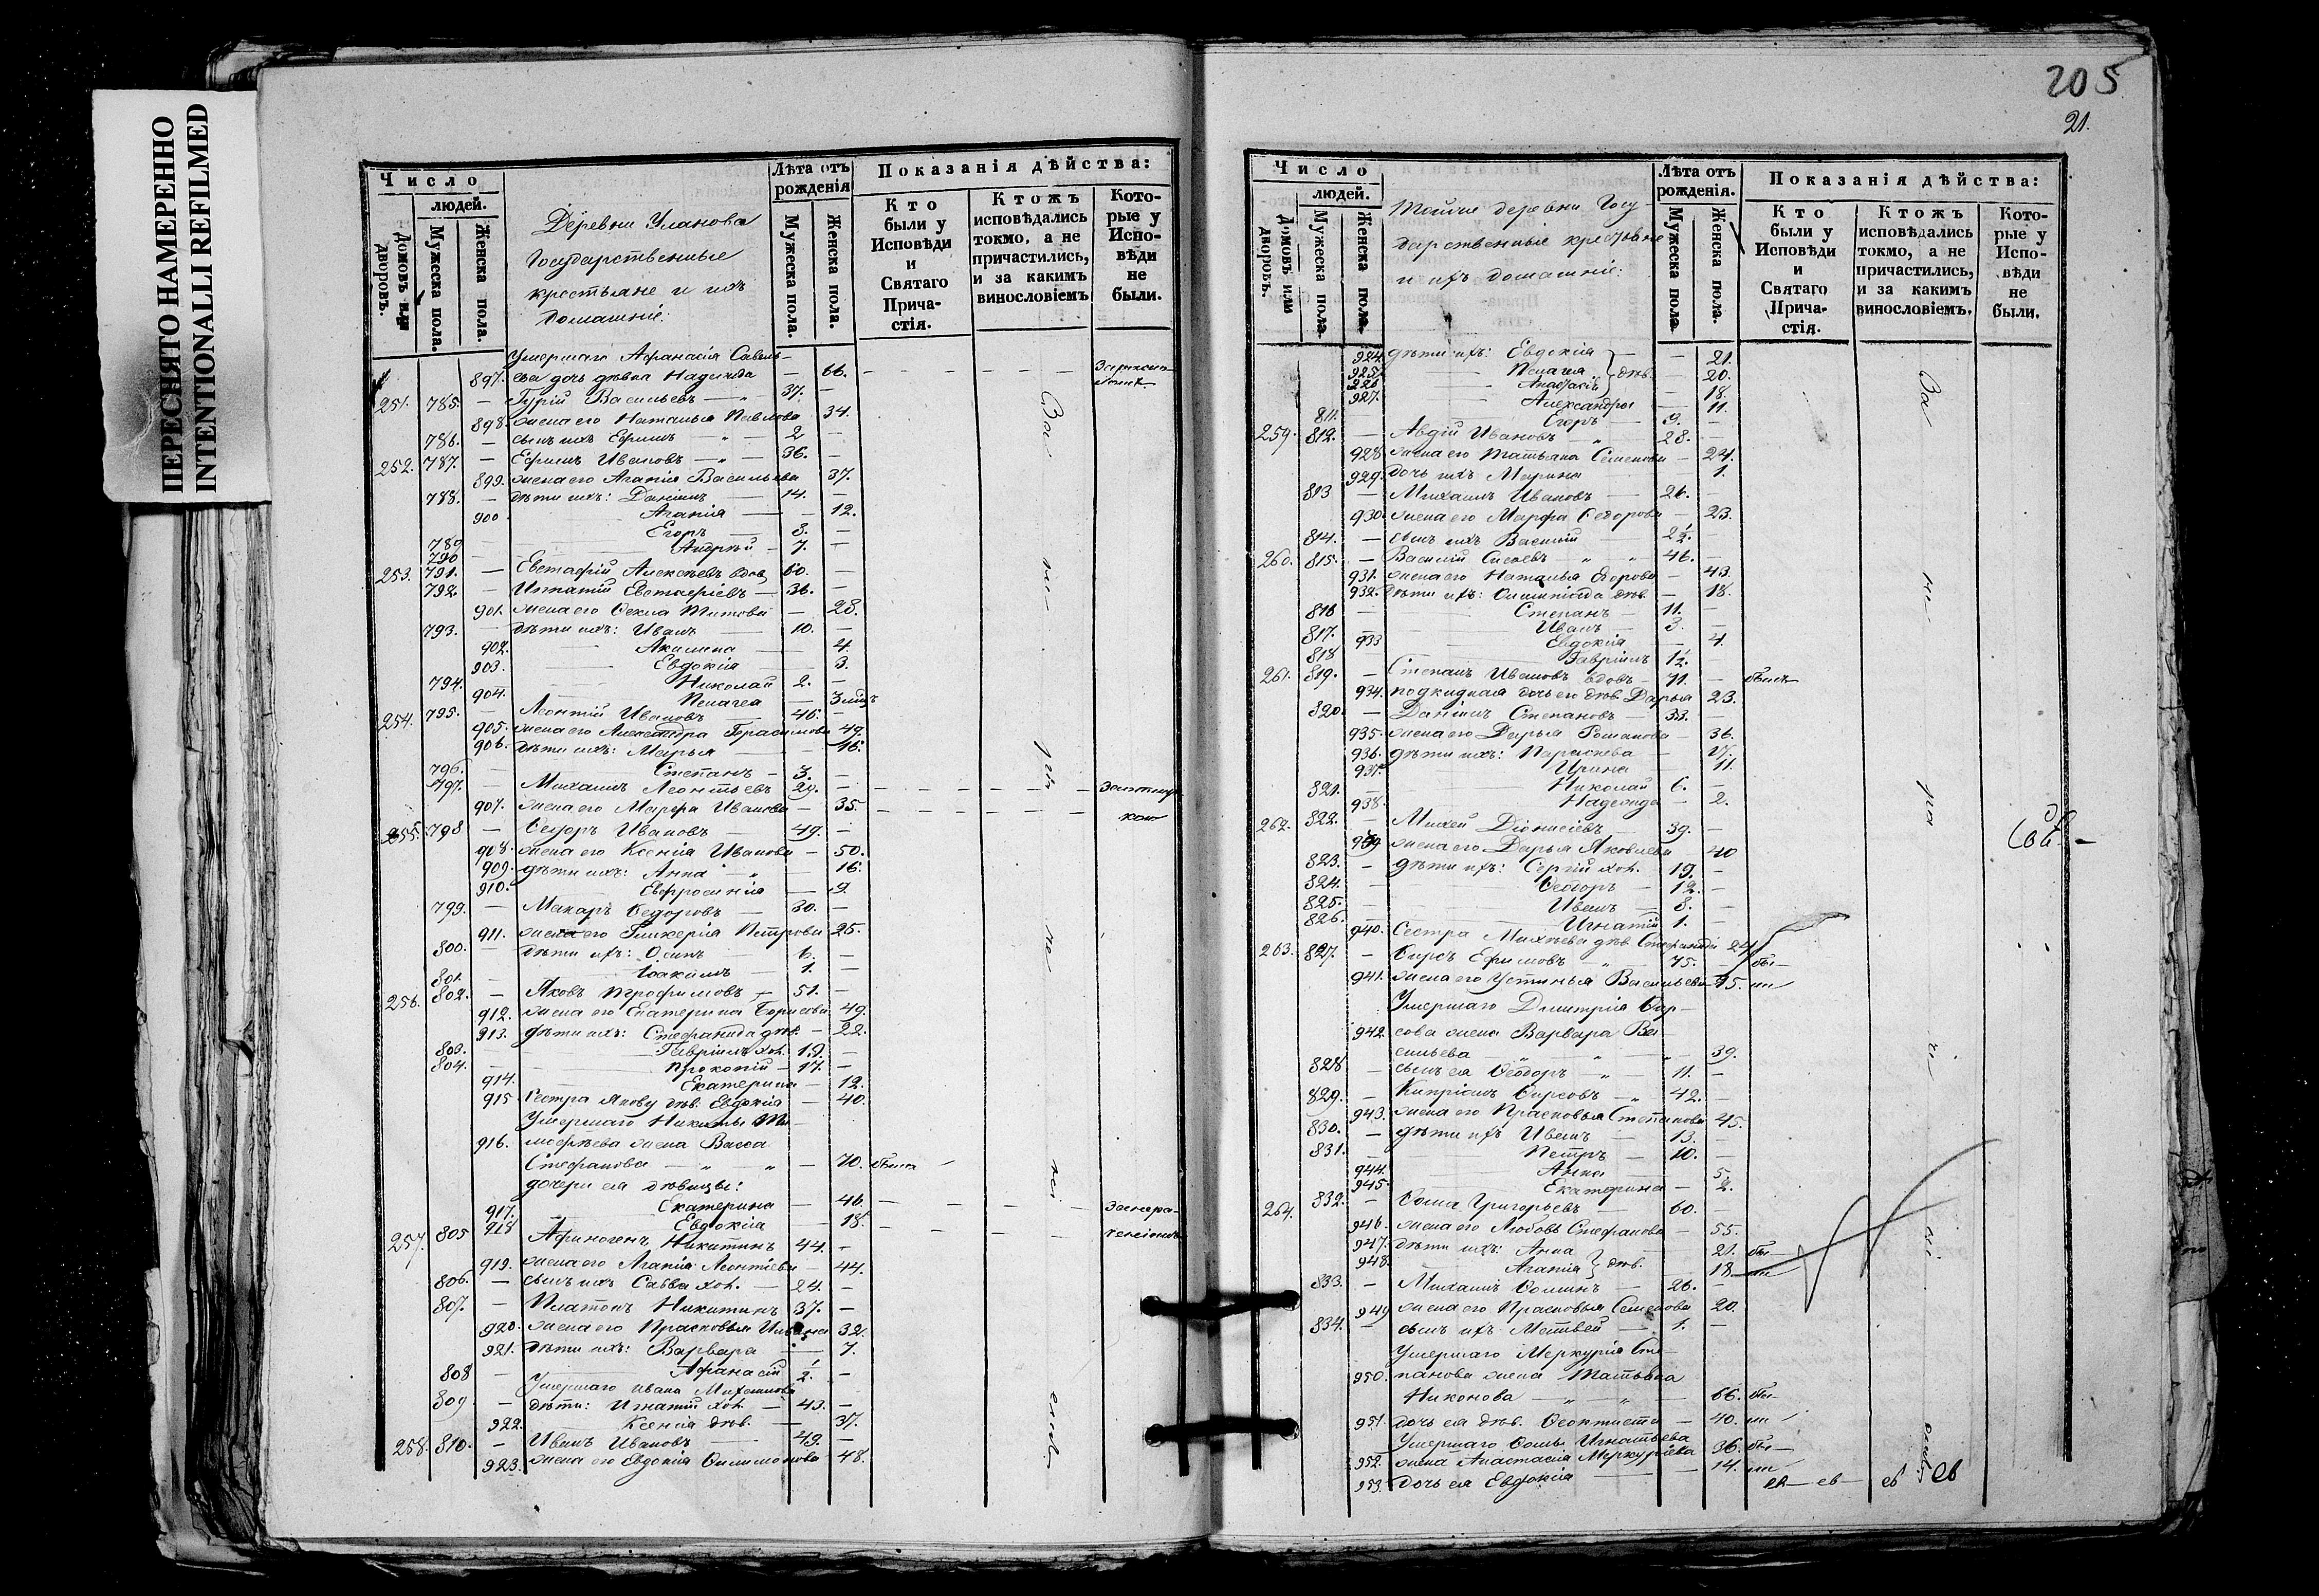 ПЕРЕСНЯТО НАМЕРЕННО
INTENTIONALLI REFILMED
Число
людей.
Домовъ или дворовъ.
Мужеска пола.
Женска пола.
Деревни Уланова
Государственные
крестьяне и ихъ
домашніе.
Лѣта отъ рожденія
Мужеска пола.
Женска пола.
Показанія дѣйства:
Кто были у Исповѣди и Святаго Причастія.
Ктожъ исповѣдались токмо, а не причастились, и за какимъ винословіемъ
Которые у Исповѣди не были.
Умершаго Афанасія Савель-
897. ева дочь дѣвка Надежда — 66.
251. 785. — Гурій Васильевъ — 37. —
898. жена его Наталья Павлова 34.
786. — сынъ ихъ Ефимъ — 2 —
252. 787. — Ефимъ Ивановъ — 36. —
899. жена его Агапія Васильева 37.
788. — дѣти ихъ: Даніилъ — 14. —
900 Агапія — 12.
789 Егоръ — 8. —
790 Андрей — 7. —
253. 791. — Евстафій Алексѣевъ вдов 60. —
792. — Игнатій Евстафіевъ — 36. —
901. жена его Фекла Титова — 28.
793. — дѣти ихъ: Иванъ — 10. —
902. Акилина — 4.
903. Евдокія — 3.
794. Николай 2. —
904. Пелагея — 3 мѣц
254. 795. — Леонтій Ивановъ — 46. —
905. жена его Александра Герасимова 49.
906. дѣти ихъ: Марья — 16.
796. — Степанъ — 3. —
797. — Михаилъ Леонтьевъ 29. —
907. жена его Марфа Иванова — 35.
255. 798 — Федоръ Ивановъ — 49. —
908. жена его Ксенія Иванова — 50.
909. дѣти ихъ: Анна — 16.
910. Евфросинія — 9.
799. — Макаръ Федоровъ — 30. —
911. жена его Гликерія Петрова 25.
800. — дѣти ихъ: Осипъ — 6. —
801. Іоакимъ — 1. —
256. 802. — Яковъ Трофимовъ — 51. —
912. жена его Екатерина Борисова 49.
913. дѣти ихъ: Стефанида дѣв. — 22.
803. Гавріилъ хол. 19. —
804. Прокопій — 17. —
914. Екатерина — 12.
915 Сестра Якову дѣв. Евдокія — 40.
Умершаго Никиты Ти-
916. мофѣева жена Васса
Стефанова — 70. была
дочери ея дѣвицы:
917. Екатерина — 46.
918 Евдокія — 18.
257. 805 Афиногенъ Никитинъ 44. —
919. жена его Агапія Леонтіева — 44.
806. — сынъ ихъ Савва хол. — 24. —
807. — Платонъ Никитинъ 37. —
920. жена его Прасковья 32.
921. дѣти ихъ: Варвара — 7.
808 — Афанасій ½. —
Умершаго Ивана Михаилова
809 — дѣти: Игнатій хол. — 43. —
922. Ксенія дѣв. — 37.
258. 810. — Иванъ Ивановъ — 49. —
923. жена его Евдокія Филимонова 48.
205
21.
Число
людей.
Домовъ или дворовъ.
Мужеска пола
Женска пола.
Тойже деревни Госу-
дарственные крестьяне
и ихъ домашніе:
Лѣта отъ рожденія.
Мужеска пола
Женска пола.
Показанія дѣйства:
Кто были у Исповѣди и Святаго Причастія.
Ктожъ исповѣдались токмо, а не причастились, и за какимъ винословіемъ.
Которые у Исповѣди не были.
924. дѣти ихъ: Евдокія — 21.
925. Пелагея дѣв. — 20.
926 Анастасія — 18.
927. Александра — 11.
811. Егоръ — 9. —
259. 812. — Авдій Ивановъ — 28. —
928. жена его Татьяна Семенова — 24.
929. дочь ихъ Марина — 1.
813 — Михаилъ Ивановъ — 26. —
930. жена его Марфа Федорова — 23.
814. — сынъ ихъ Василій — 2½. —
260. 815. — Василій Сысоевъ — 46. —
931. жена его Наталья Егорова — 43.
932. дѣти ихъ: Олимпіада дѣв. — 18.
816 — Степанъ — 11. —
817. — Иванъ — 3. —
933 Евдокія — 4.
818 Гавріилъ ½. —
261. 819. — Степанъ Ивановъ вдовъ — 71. — былъ
934. подкидная дочь его дѣв. Дарья 23.
820. — Даніилъ Степановъ — 33. —
935. жена его Дарья Романова — 36.
936. дѣти ихъ: Параскева — 17.
937. Ирина — 11.
821. — Николай 6. —
938. Надежда — 2.
262. 822. — Михей Діонисіевъ — 39. —
939 жена его Дарья Яковлева — 40
823. — дѣти ихъ: Сергій хол. 19. —
824. — Феодоръ — 12. —
825. — Иванъ — 8. —
826. — Игнатій 1. —
940. Сестра Михѣева дѣв. Стефанида 24
263. 827. — Фирсъ Ефимовъ — 75. — бы-
941. жена его Устинья Васильева 75. ли
Умершаго Дмитрія Фир-
942. сова жена Варвара Ва-
сильева — 39.
828 — сынъ ея Феодоръ — 11. —
829. — Кипріанъ Фирсовъ — 42. —
943. жена его Прасковья Степанова 45.
830. — дѣти ихъ Иванъ — 13. —
831. — Петръ — 10. —
944. Анна — 5.
945. Екатерина — 2.
264. 832. — Фома Григорьевъ — 60. —
946. жена его Любовь Стефанова — 55.
947. дѣти ихъ: Анна — 21. бы-
948. Агапія дѣв. — 18 ли
833. — Михаилъ Фоминъ — 26. —
949 жена его Прасковья Семенова 20.
834. — сынъ ихъ Матвей — 1. —
Умершаго Меркурія Сте-
950. панова жена Татьяна
Никонова — 66. бы-
951. дочь ея дѣв. Феоктиста — 40. ли
Умершаго Фомы Игнатьева
952. жена Анастасія Меркурьева 36. бы-
953. дочь ея Евдокія — 14. ли